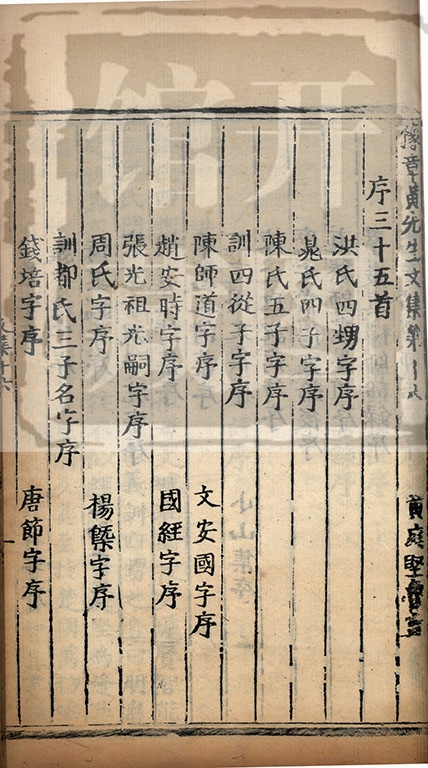 豫章黄先生文集第十六
黄庭堅魯直
序三十五首
洪氏四甥字序
晁氏四子字序
陳氏五子字序
訓四從子字序
陳師道字序 文安國字序
趙安時字序 國經字序
張光祖光嗣字序
周氏字序 楊槩字序
訓郭氏三子名字序
錢培字序 唐節字序
文集十六